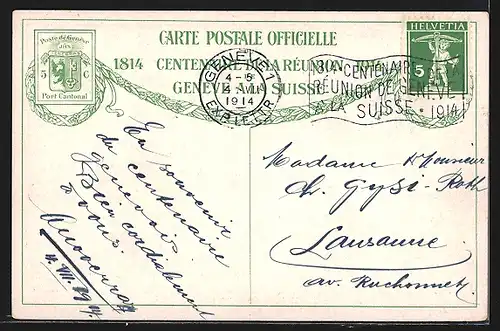 CARTE POSTALE OFFICIELLE
1814 CENTENAIRE DE LA RÉUNION 1914
GENÈVE À LA SUISSE
Poste de Genève
5 C
Port Cantonal
GENÈVE 1
4-5
1914
EXP. LETTR.
HELVETIA
5
CENTENAIRE
RÉUNION DE GENÈVE
A LA SUISSE · 1914
En souvenir
du centenaire
genevois
Bien cordialement
à vous
4. VII. 1914
Madame & Monsieur
Ch. Gysi-Roth
Lausanne
av. Ruchonnet